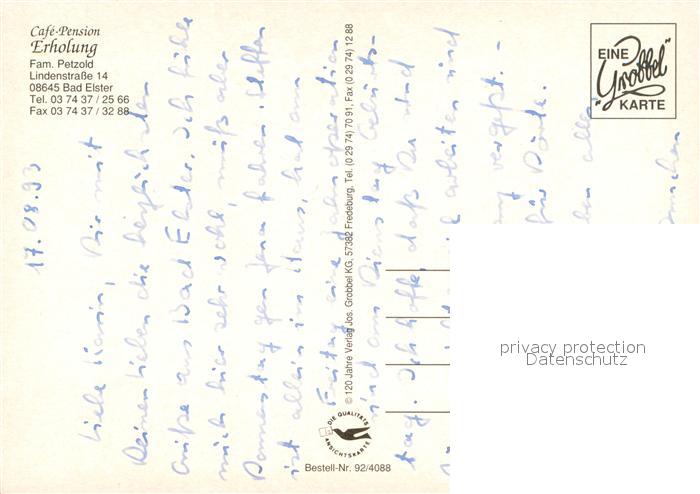 Café-Pension
Erholung
Fam. Petzold
Lindenstraße 14
08645 Bad Elster
Tel. 03 74 37 / 25 66
Fax 03 74 37 / 32 88
EINE
"Grobbel"
KARTE
17.08.93
Liebe Karin, Dir mit
Deinen Lieben die herzlichsten
Grüße aus Bad Elster. Ich fühle
mich hier sehr wohl, muß aber
Donnerstag gen Jena fahren. Steffen
ist allein im Haus, hat am
Freitag eine Zahnoperation
und am Dienstag Geburts-
tag. Ich hoffe, daß Du und
arbeiten und
vergißt.
für Dörte.
alles
© 120 Jahre Verlag Jos. Grobbel KG, 57382 Fredeburg, Tel. (0 29 74) 70 91, Fax (0 29 74) 12 88
DIE QUALITÄTS
ANSICHTSKARTE
Bestell-Nr. 92/4088
privacy protection
Datenschutz